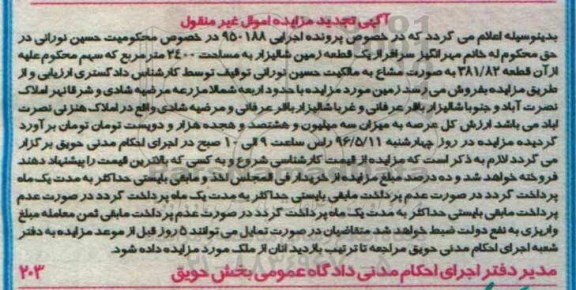 آگهی تجدید مزایده اموال غیر منقول
بدینوسیله اعلام می گردد که در خصوص پرونده اجرایی ۹۵۰۱۸۸ در خصوص محکومیت حسین نورانی در
حق محکوم له خانم مهرانگیز سرافراز یک قطعه زمین شالیزار به مساحت ۲۴۰۰ متر مربع که سهم محکوم علیه
از آن قطعه ۳۸۱/۸۲ به صورت مشاع به مالکیت حسین نورانی توقیف توسط کارشناس دادگستری ارزیابی و از
طریق مزایده بفروش می رسد زمین مورد مزایده با حدود اربعه شمالا مزرعه مرضیه شادی و شرقا نهر املاک
نصرت آباد و جنوبا شالیزار باقر عرفانی و غربا شالیزار باقر عرفانی و مرضیه شادی واقع در املاک هنزنی نصرت
اباد می باشد ارزش کل عرصه به میزان سه میلیون و هشتصد و هجده هزار و دویست تومان تومان برآورد
گردیده مزایده در روز چهارشنبه ۹۶/۵/۱۱ راس ساعت ۹ الی ۱۰ صبح در اجرای احکام مدنی حویق برگزار
می گردد لازم به ذکر است که مزایده از قیمت کارشناسی شروع و به کسی که بالاترین قیمت را پیشنهاد دهند
فروخته خواهد شد و ده درصد مبلغ مزایده از خریدار فی المجلس اخذ و مابقی بایستی حداکثر به مدت یک ماه
پرداخت گردد در صورت عدم پرداخت مابقی بایستی حداکثر به مدت یک ماه پرداخت گردد در صورت عدم
پرداخت مابقی بایستی حداکثر به مدت یک ماه پرداخت گردد در صورت عدم پرداخت مابقی ثمن معامله مبلغ
واریزی به نفع دولت ضبط خواهد شد متقاضیان در صورت تمایل می توانند ۵ روز قبل از موعد مزایده به دفتر
شعبه اجرای احکام مدنی حویق مراجعه تا ترتیب بازدید انان از ملک مورد مزایده داده شود.
مدیر دفتر اجرای احکام مدنی دادگاه عمومی بخش حویق ۲۰۳